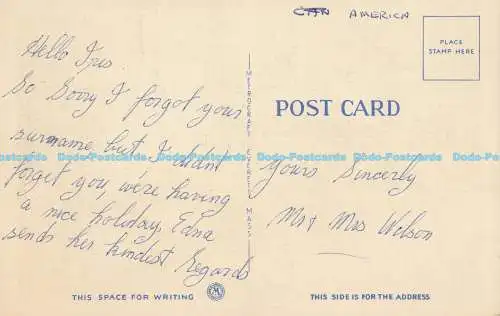 CAN AMERICA
PLACE
STAMP HERE
Hello Iris.
So Sorry I forgot your
surname but I didn't
forget you, we're having
a nice holiday, Edna
sends her kindest regards
METROCRAFT EVERETT MASS
POST CARD
Yours Sincerly
Mr & Mrs Wilson
Dodo-Postcards Dodo-Postcards Dodo-Postcards Dodo-Postcards Dodo-Postcards Dodo-Postcards
THIS SPACE FOR WRITING
THIS SIDE IS FOR THE ADDRESS